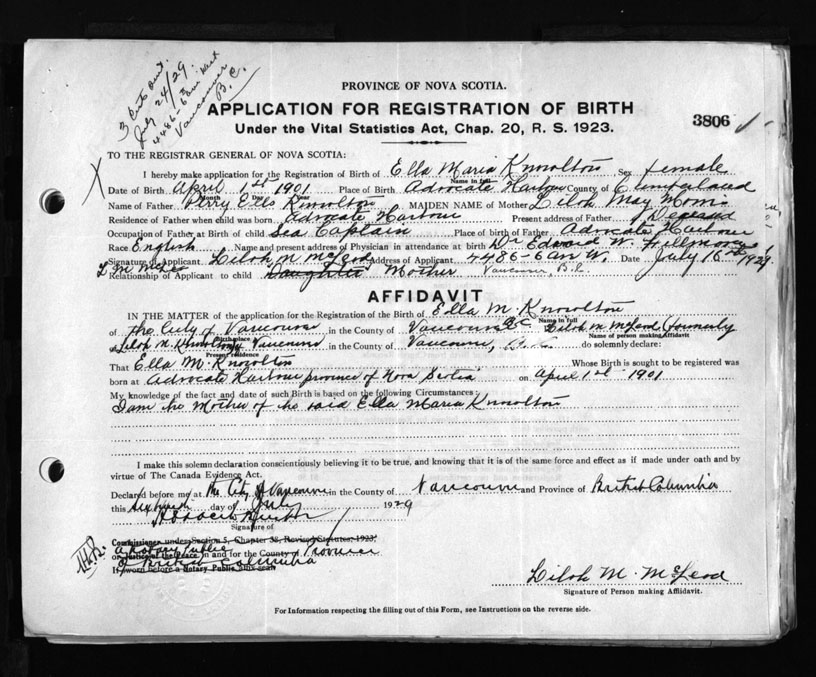 3 Certs out.
July 24/29.
4486-6 am West
Vancouver
B.C.
PROVINCE OF NOVA SCOTIA.
APPLICATION FOR REGISTRATION OF BIRTH
3806
Under the Vital Statistics Act, Chap. 20, R. S. 1923.
TO THE REGISTRAR GENERAL OF NOVA SCOTIA:
I hereby make application for the Registration of Birth of Ella Maria Knowlton Sex female
Name in full
Date of Birth April 1st 1901 Place of Birth Advocate Harbour County of Cumberland
Month Day Year
Name of Father Perry Ells Knowlton MAIDEN NAME of Mother Liloh May Morris
Residence of Father when child was born Advocate Harbour Present address of Father Deceased
Occupation of Father at Birth of child Sea Captain Place of birth of Father Advocate Harbour
Race English Name and present address of Physician in attendance at birth Dr Edward W. Fillmore
Signature of Applicant Liloh M McLeod Address of Applicant 4486-6am W. Date July 16th 1929
L M McLeod Relationship of Applicant to child Daughter Mother Vancouver B.C.
AFFIDAVIT
IN THE MATTER of the application for the Registration of the Birth of Ella M. Knowlton
Name in full
of the City of Vancouver in the County of Vancouver B.C. Liloh M. McLeod (formerly
Birth place Name of person making Affidavit
of Liloh M. Knowlton) Vancouver in the County of Vancouver, B.C. do solemnly declare:
Present residence
That Ella M. Knowlton Whose Birth is sought to be registered was
born at Advocate Harbour province of Nova Scotia on April 1st 1901
My knowledge of the fact and date of such Birth is based on the following Circumstances:
I am the Mother of the said Ella Maria Knowlton
I make this solemn declaration conscientiously believing it to be true, and knowing that it is of the same force and effect as if made under oath and by
virtue of The Canada Evidence Act.
Declared before me at the City of Vancouver in the County of Vancouver and Province of British Columbia
this Sixteenth day of July 1929
Signature of
Commissioner under Section 5, Chapter 38, Revised Statutes, 1923
A Notary Public
or Justice of the Peace in and for the County of Province
of British Columbia
If sworn before a Notary Public, affix seal
Liloh M. McLeod
Signature of Person making Affidavit.
For Information respecting the filling out of this Form, see Instructions on the reverse side.